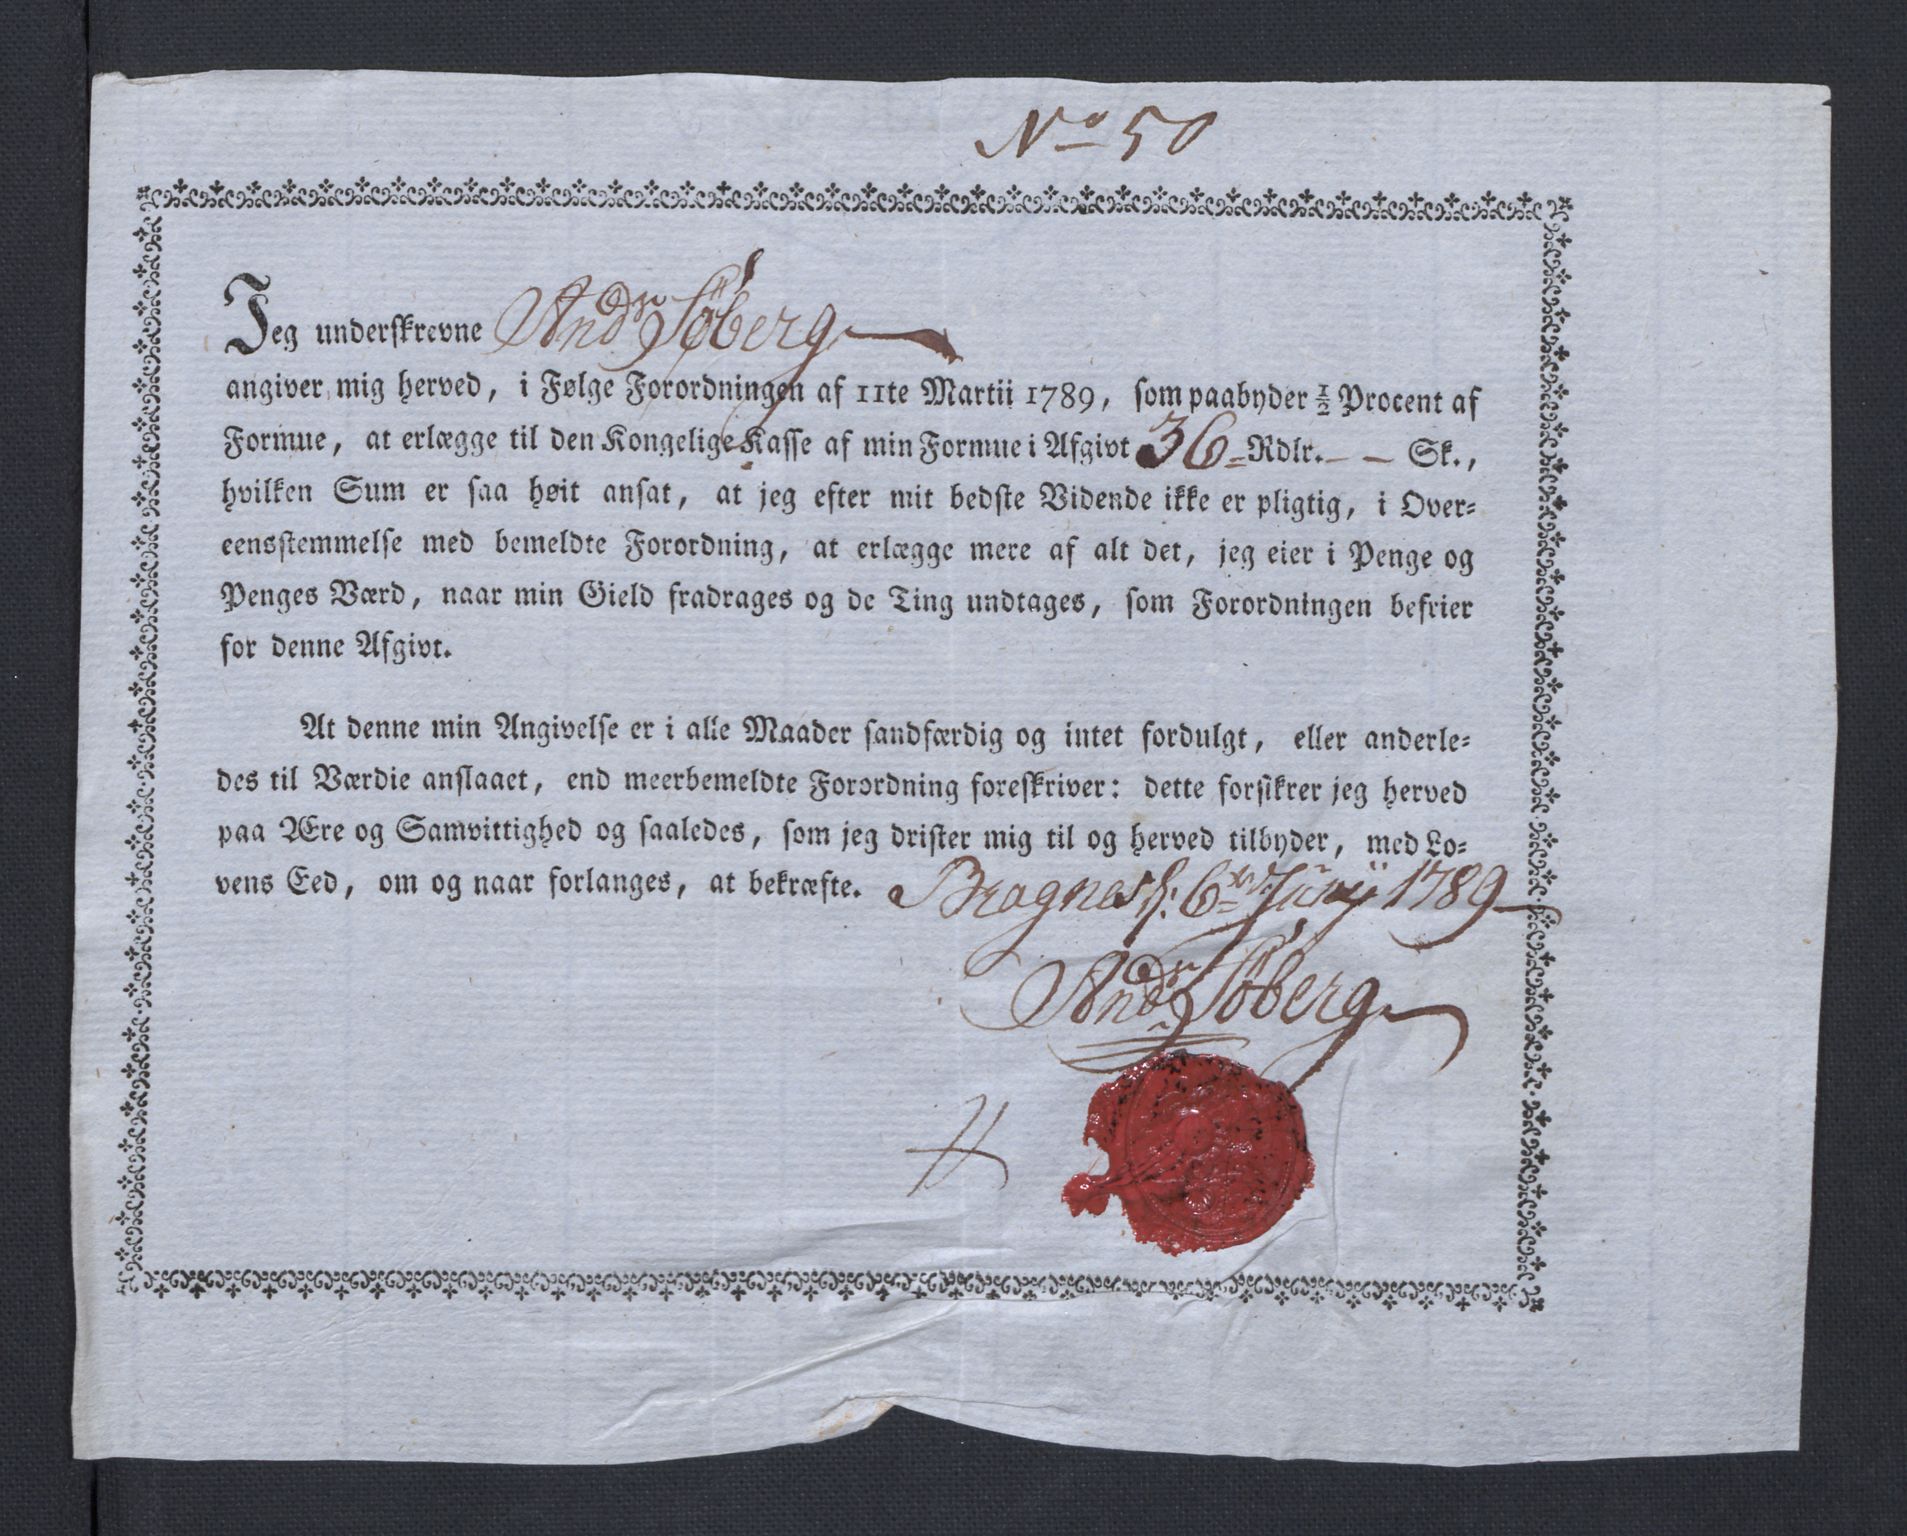 No 50
Jeg underskrevne Andr Søberg
angiver mig herved, i Følge Forordningen af 11te Martii 1789, som paabyder ½ Procent af
Formue, at erlægge til den Kongelige Kasse af min Formue i Afgivt 36 Rdlr. - - Sk.,
hvilken Sum er saa høit ansat, at jeg efter mit bedste Vidende ikke er pligtig, i Over-
eensstemmelse med bemeldte Forordning, at erlægge mere af alt det, jeg eier i Penge og
Penges Værd, naar min Gield fradrages og de Ting undtages, som Forordningen befrier
for denne Afgivt.
At denne min Angivelse er i alle Maader sandfærdig og intet fordulgt, eller anderle-
des til Værdie anslaaet, end meerbemeldte Forordning foreskriver: dette forsikrer jeg herved
paa Ære og Samvittighed og saaledes, som jeg drister mig til og herved tilbyder, med Lo-
vens Eed, om og naar forlanges, at bekræfte. Bragness: 6te Junij 1789
Andr Søberg